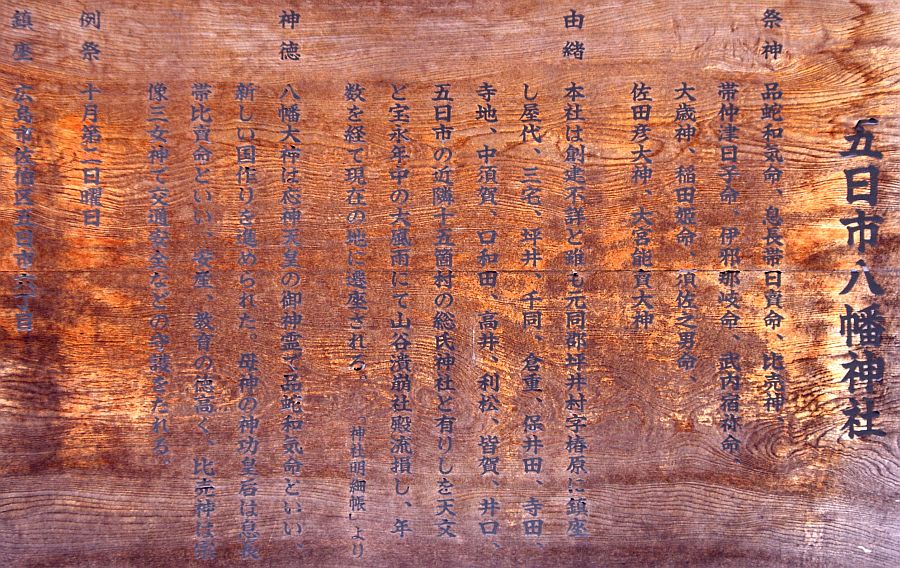 五日市八幡神社
祭神 品蛇和気命、息長帯日賣命、比売神、
帯仲津日子命、伊邪那岐命、武内宿祢命
大歳神、稲田姫命、須佐之男命、
佐田彦大神、大宮能賣大神
由緒 本社は創建不詳と雖も元同郡坪井村字椿原に鎮座
し屋代、三宅、坪井、千同、倉重、保井田、寺田、
寺地、中須賀、口和田、高井、利松、皆賀、井口、
五日市の近隣十五箇村の総氏神社と有りしを天文
と宝永年中の大風雨にて山谷潰崩社殿流損し、年
数を経て現在の地に遷座される。 「神社明細帳」より
神徳 八幡大神は応神天皇の御神霊で品蛇和気命といい、
新しい国作りを進められた。母神の神功皇后は息長
帯比賣命といい、安産、教育の徳高く、比売神は宗
像三女神で交通安全などの守護をたれる。
例祭 十月第二日曜日
鎮座 広島市佐伯区五日市六丁目